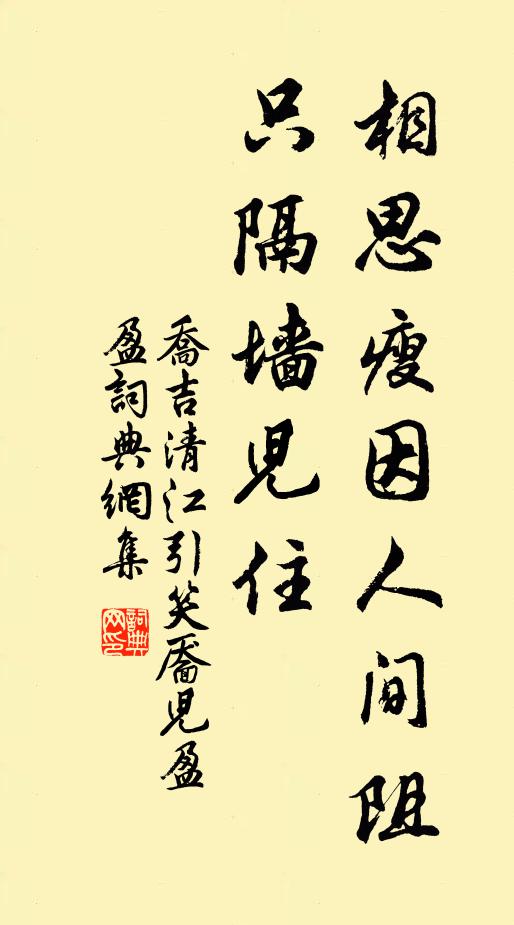 相思瘦因人间阻
只隔墙児住
喬吉清江引笑靨児盈
盈詞典網集
詞典
网印